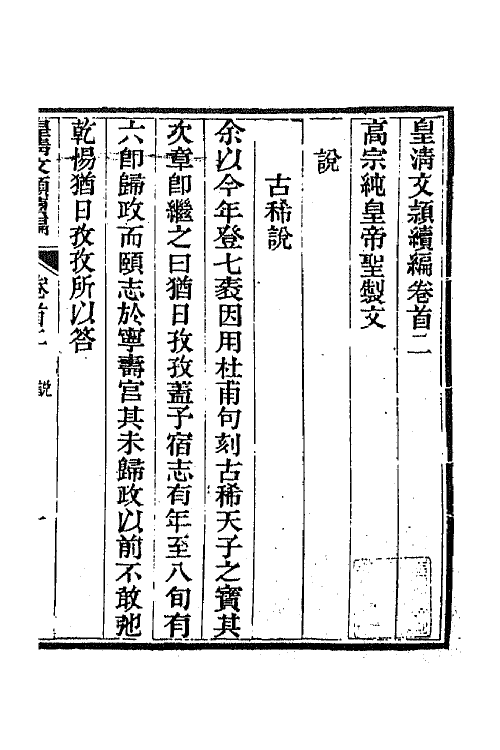 皇淸文頴續編卷首二
高宗純皇帝聖製文
說
古稀說
余以今年登七袠因用杜甫句刻古稀天子之寶其
次章卽繼之曰猶日孜孜蓋予宿志有年至八旬有
六卽歸政而頤志於寧壽宫其未歸政以前不敢弛
乾惕猶日孜孜所以答
皇淸文頴續編 卷首二 說 一